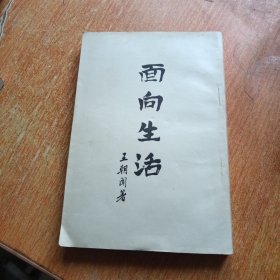 面向生活
王朝闻著